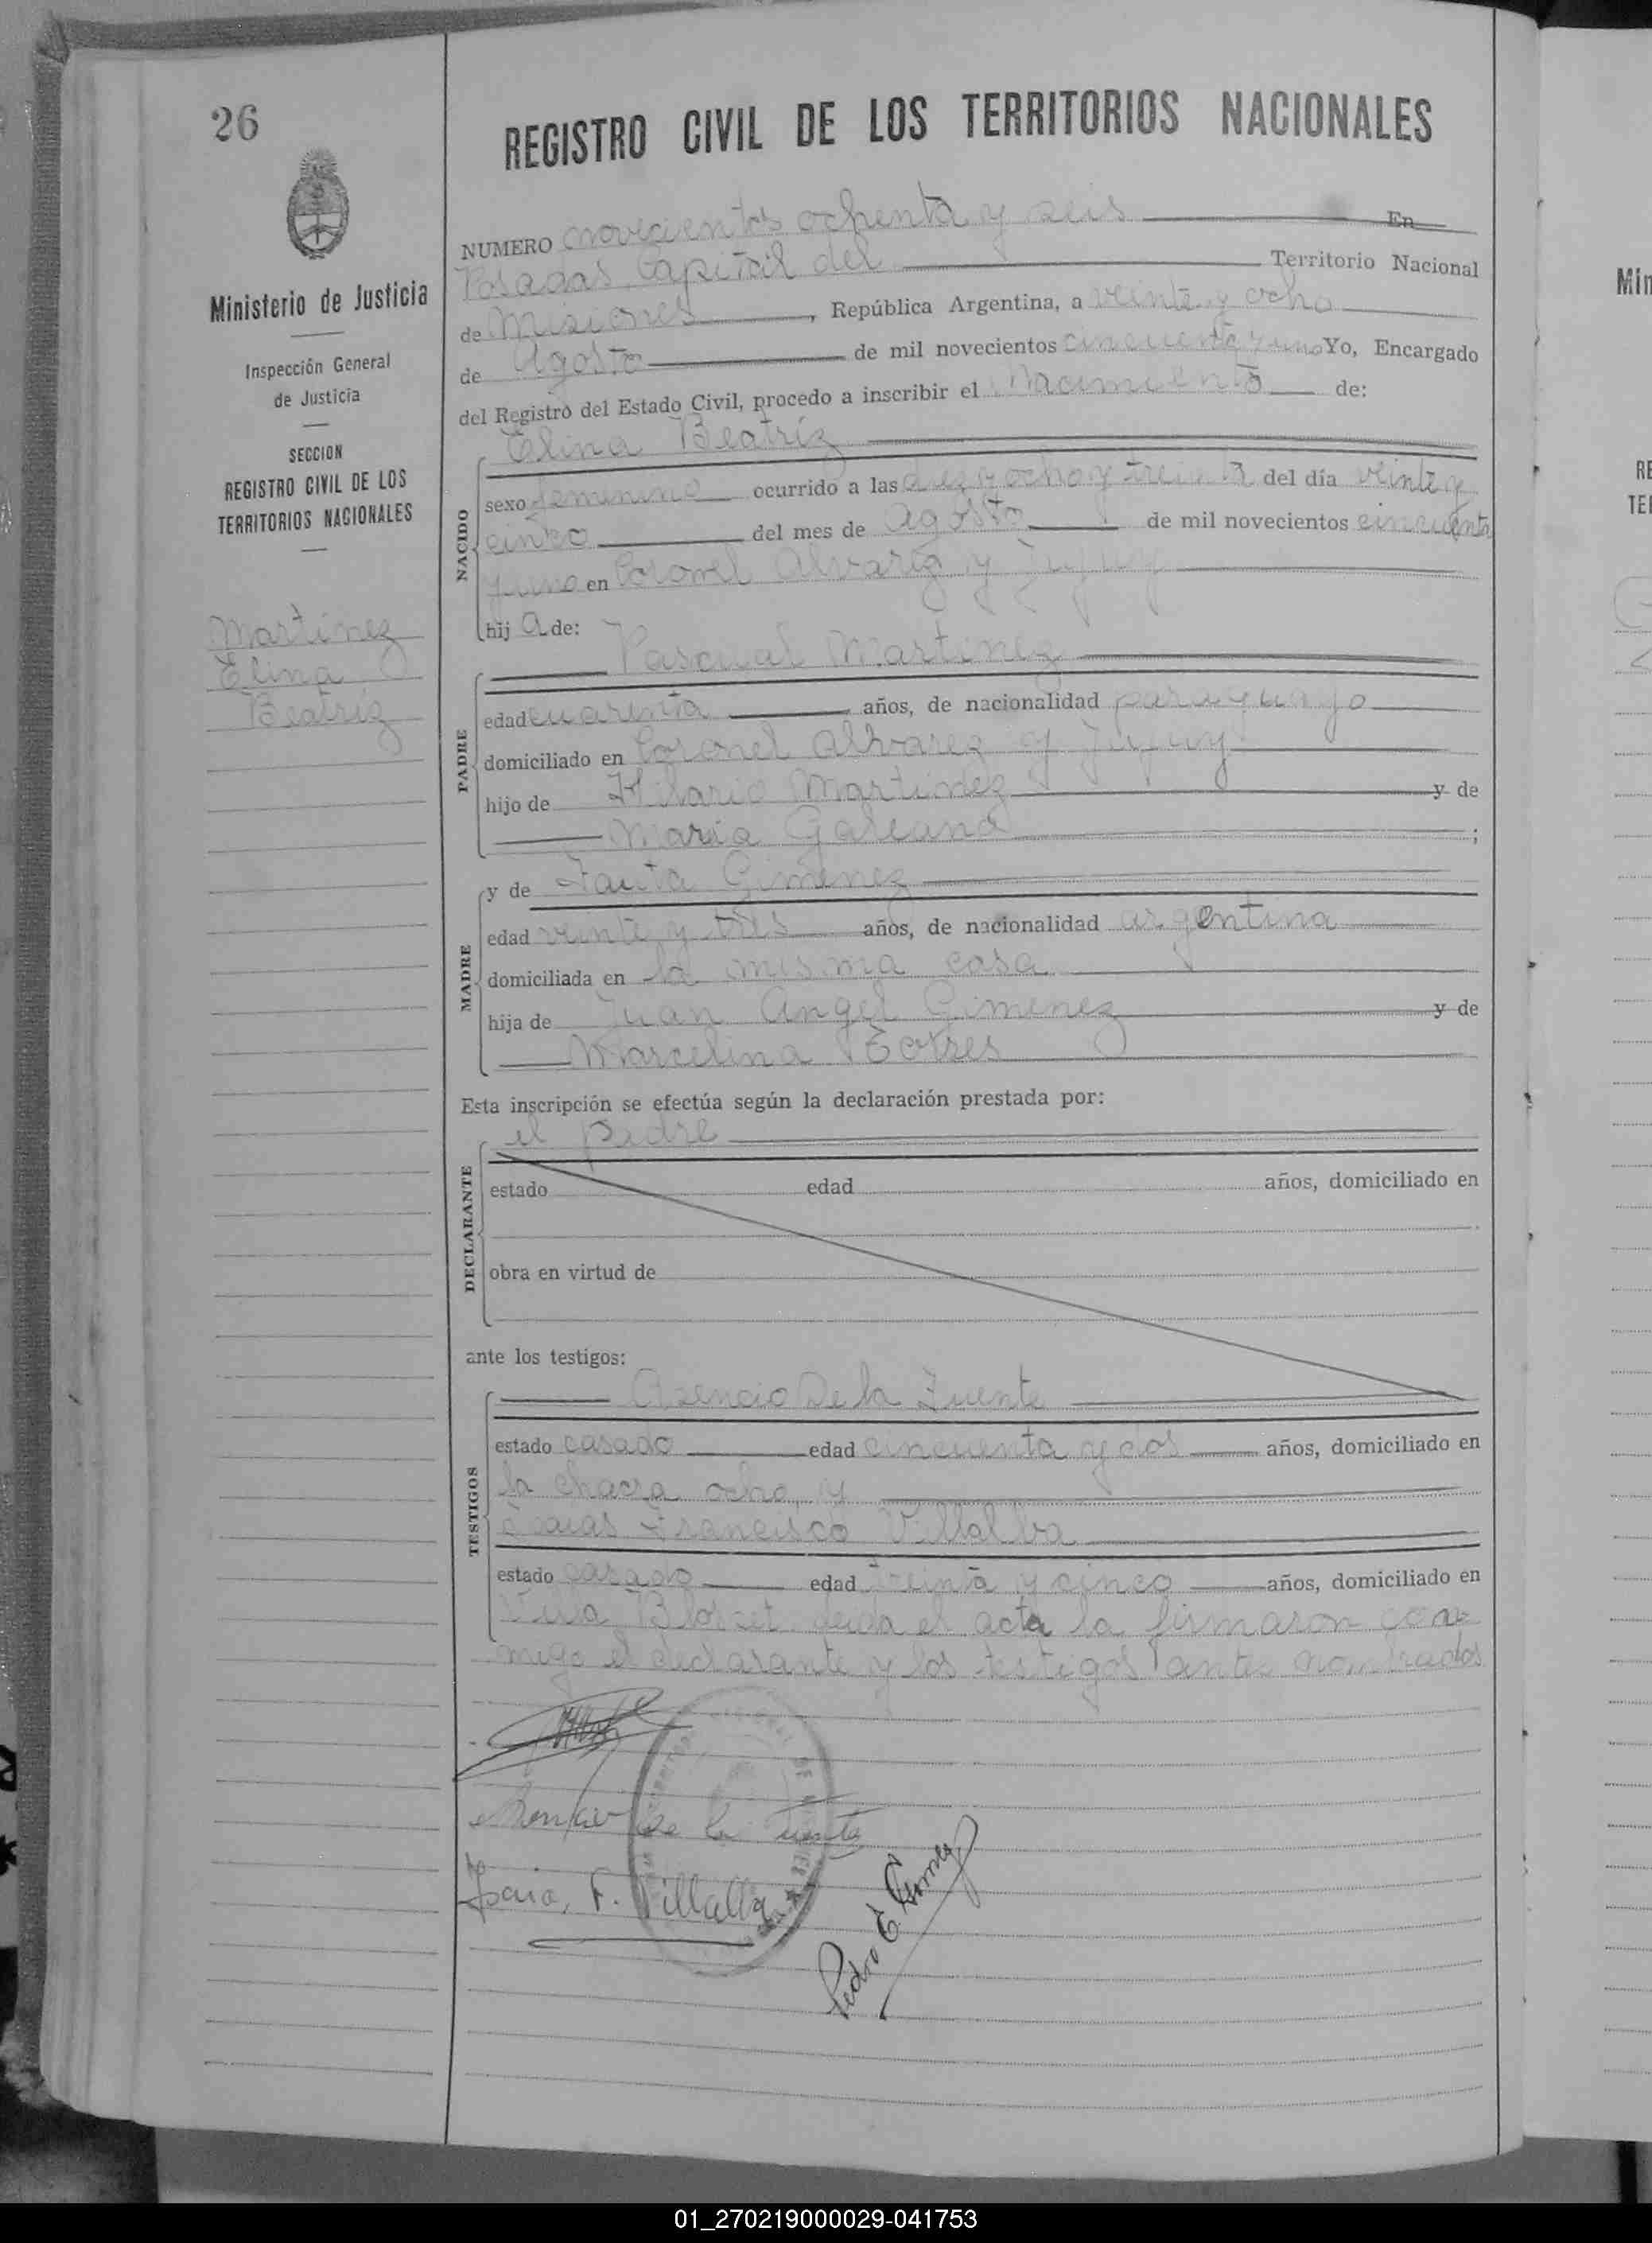 26
Ministerio de Justicia
Inspección General
de Justicia
SECCION
REGISTRO CIVIL DE LOS
TERRITORIOS NACIONALES
Martinez
Elina
Beatríz
REGISTRO CIVIL DE LOS TERRITORIOS NACIONALES
NUMERO novecientos ochenta y seis En
Posadas Capital del Territorio Nacional
de Misiones, República Argentina, a veinte y ocho
de Agosto de mil novecientos cincuenta y uno Yo, Encargado
del Registro del Estado Civil, procedo a inscribir el Nacimiento de:
Elina Beatríz
NACIDO
sexo femenino ocurrido a las diez y ocho y treinta del día veinte y
cinco del mes de agosto de mil novecientos cincuenta
y uno en Coronel Alvarez y Jujuy
hija de:
Pascual Martinez
PADRE
edad cuarenta años, de nacionalidad paraguayo
domiciliado en Coronel Alvarez y Jujuy
hijo de Hilario Martinez y de
María Galeano;
MADRE
y de Fausta Gimenez
edad veinte y tres años, de nacionalidad argentina
domiciliada en la misma casa
hija de Juan Angel Gimenez y de
Marcelina
Esta inscripción se efectúa según la declaración prestada por:
el padre
DECLARANTE
estado edad años, domiciliado en
obra en virtud de
ante los testigos:
Asencio De la Fuente
TESTIGOS
estado casado edad cincuenta y dos años, domiciliado en
la chacra ocho y
Isaias Francisco Villalba
estado casado edad treinta y cinco años, domiciliado en
Villa Blosset leida el acta la firmaron con-
migo el declarante y los testigos antes nombrados
de la Fuente
F. Villalba
Pedro E Gomez
Min
RE
TE
01_270219000029-041753